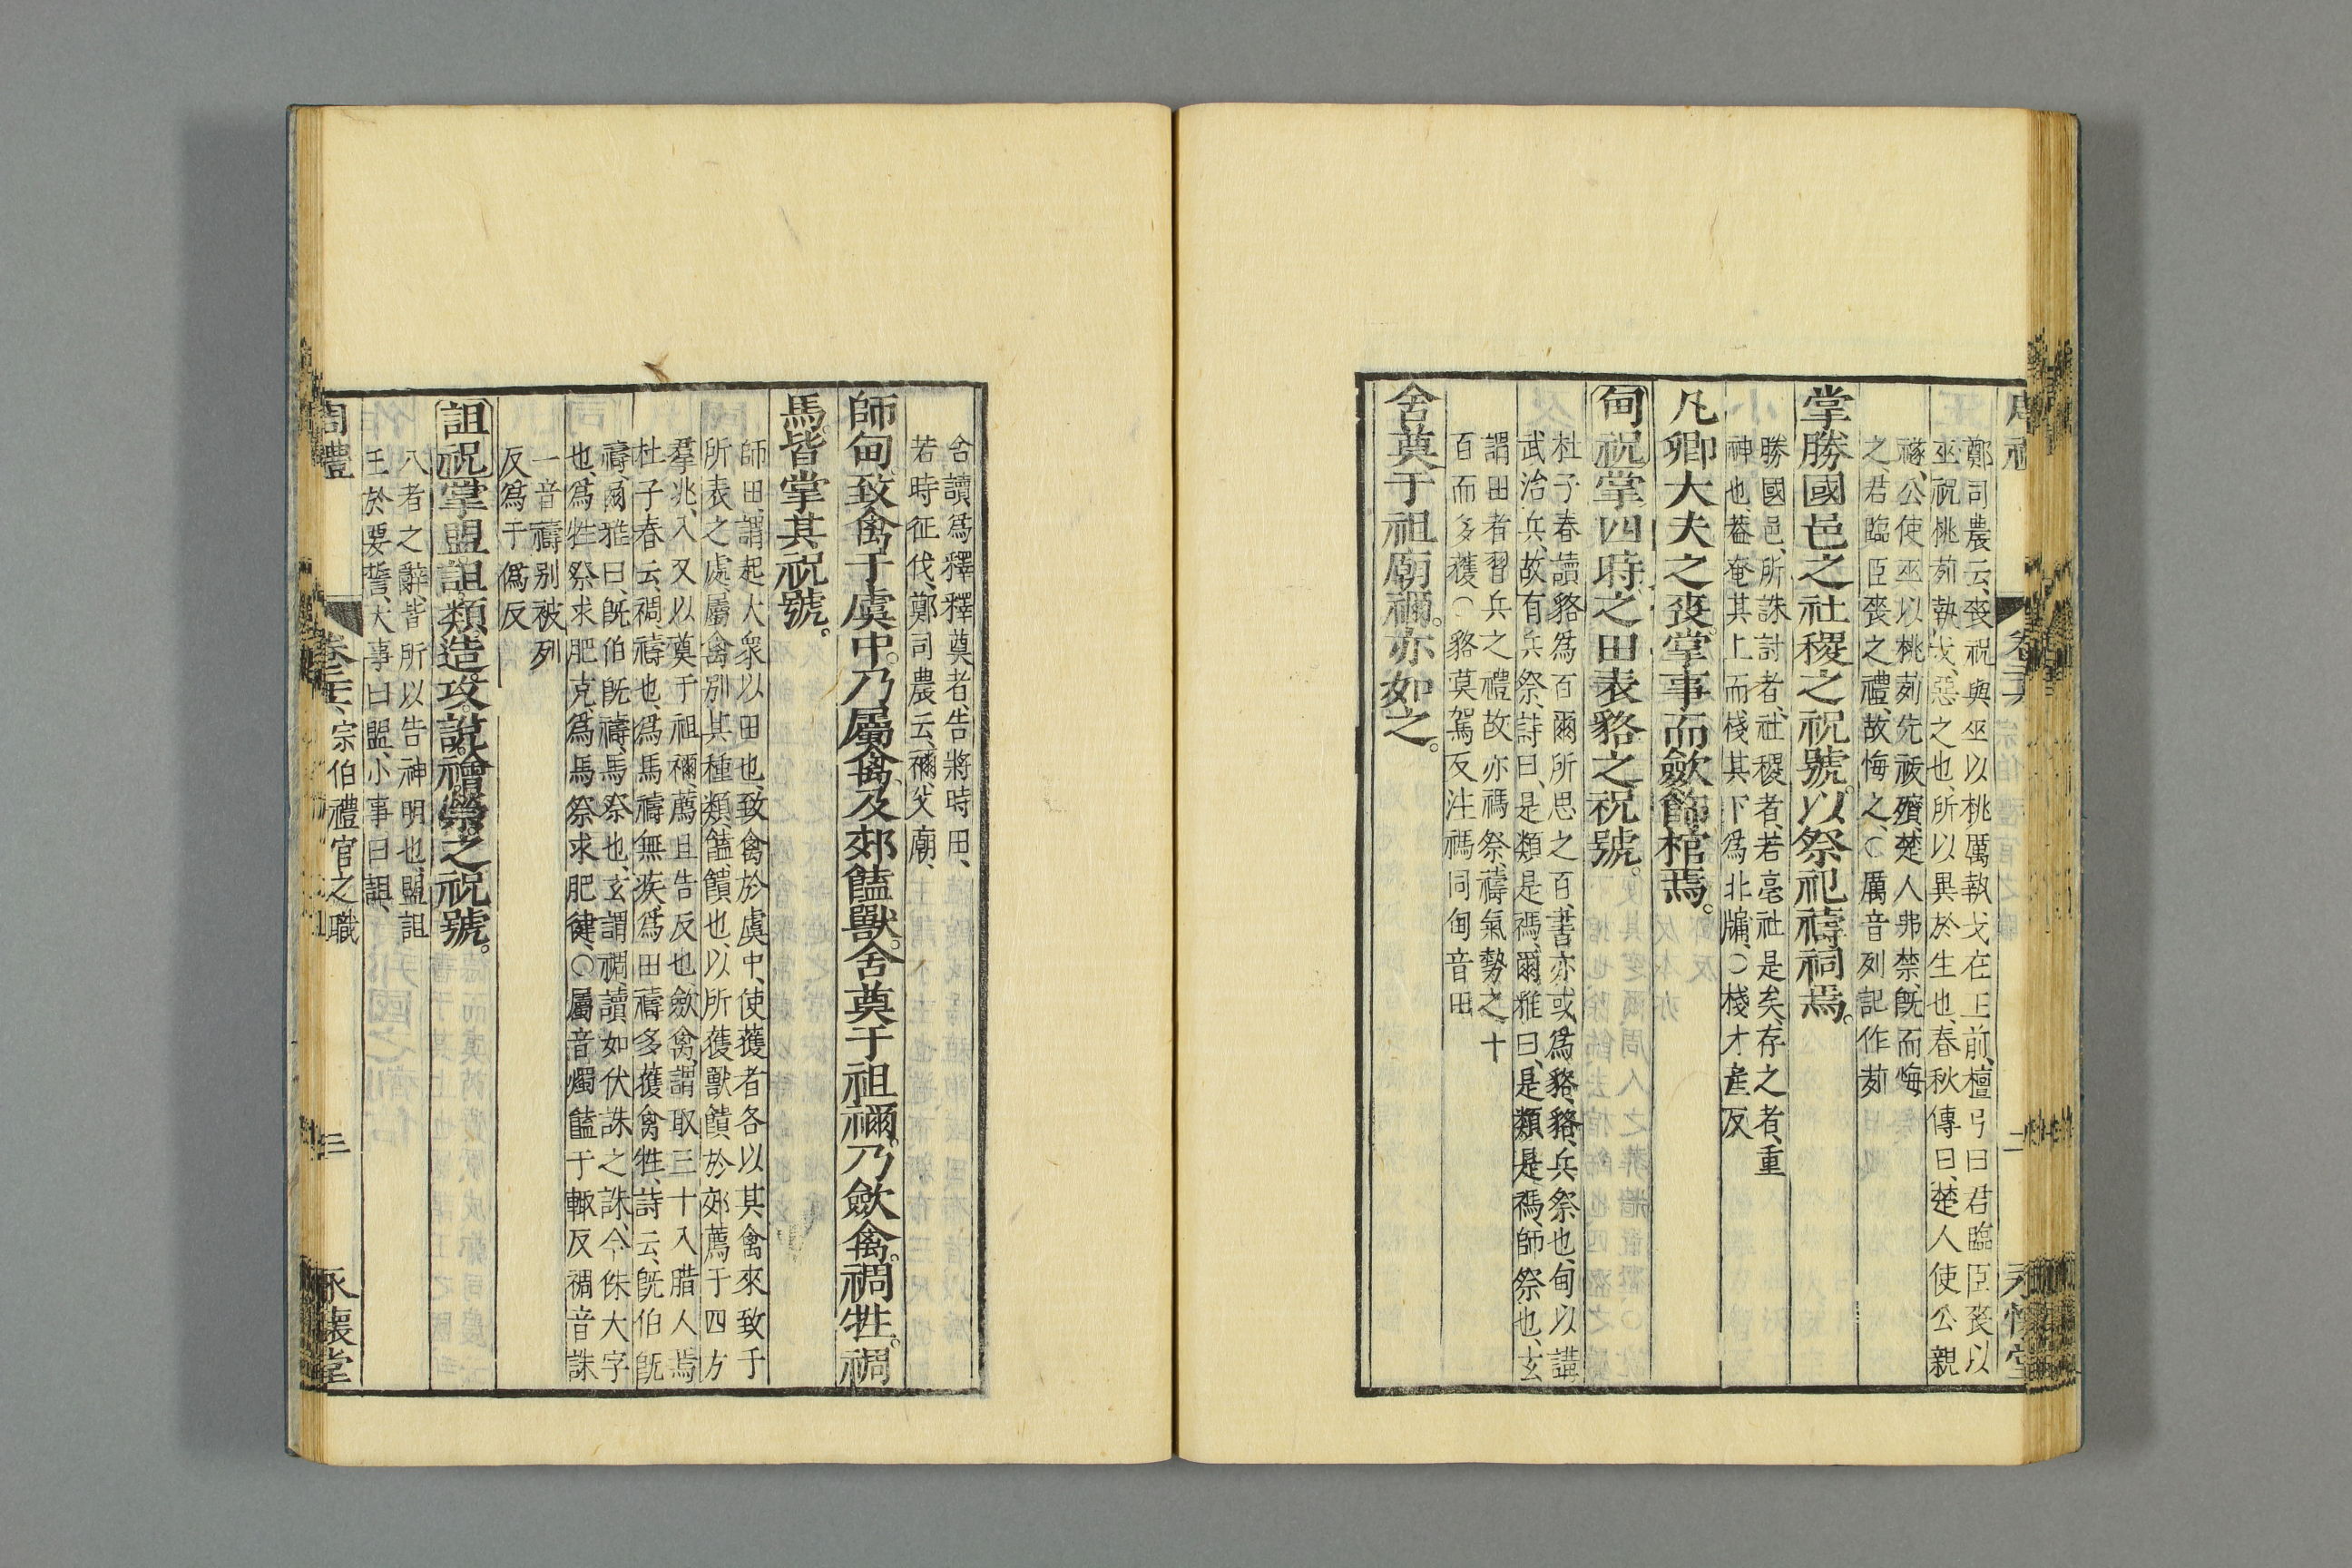 鄭司農云、喪祝與巫以桃厲執戈在王前、檀弓曰君臨臣喪以
巫祝桃茢執戈、惡之也、所以異於生也、春秋傳曰、楚人使公親
襚、公使巫以桃茢先祓殯、楚人弗禁、旣而悔
之、君臨臣喪之禮、故悔之、○厲音列記作茢
掌勝國邑之社稷之祝號。以祭祀禱祠焉。
勝國邑、所誅討者、社稷者、若亳社是矣、存之者、重
神也、葢奄其上而棧其下、爲北牖、○棧才產反
凡卿大夫之喪。掌事而斂飾棺焉。
甸祝掌四時之田表貉之祝號。
杜子春讀貉爲百爾所思之百、書亦或爲貉、貉、兵祭也、甸以講
武治兵、故有兵祭、詩曰、是類是禡、爾雅曰、是類是禡、師祭也、玄
謂田者習兵之禮故亦禡祭、禱氣勢之十
百而多獲○貉莫駕反注禡同甸音田
舍奠于祖廟。禰亦如之。
舍讀爲釋釋奠者、告將時田、
若時征伐、鄭司農云、禰、父廟、
師甸。致禽于虞中。乃屬禽。及郊饁獸。舍奠于祖禰。乃斂禽。禂牲。禂
馬。皆掌其祝號。
師田、謂起大衆以田也、致禽於虞中、使獲者各以其禽來致于
所表之處、屬禽、別其種類、饁饋也、以所獲獸饋於郊薦于四方
羣兆、入又以奠于祖禰、薦且告反也、斂禽、謂取三十入腊人焉
杜子春云、禂禱也、爲馬禱無疾、爲田禱多獲禽牲、詩云、旣伯旣
禱、爾雅曰、旣伯旣禱、馬祭也、玄謂禂、讀如伏誅之誅、今侏大字
也、爲牲祭求肥充、爲馬祭求肥健、○屬音燭饁于輒反禂音誅
一音禱别被列
反爲于僞反
詛祝掌盟。詛。類。造。攻。說。禬。禜之祝號。
八者之辭、皆所以告神明也、盟詛
主於要誓、大事曰盟、小事曰詛、
周禮
宗伯禮官之職
三
永懷堂